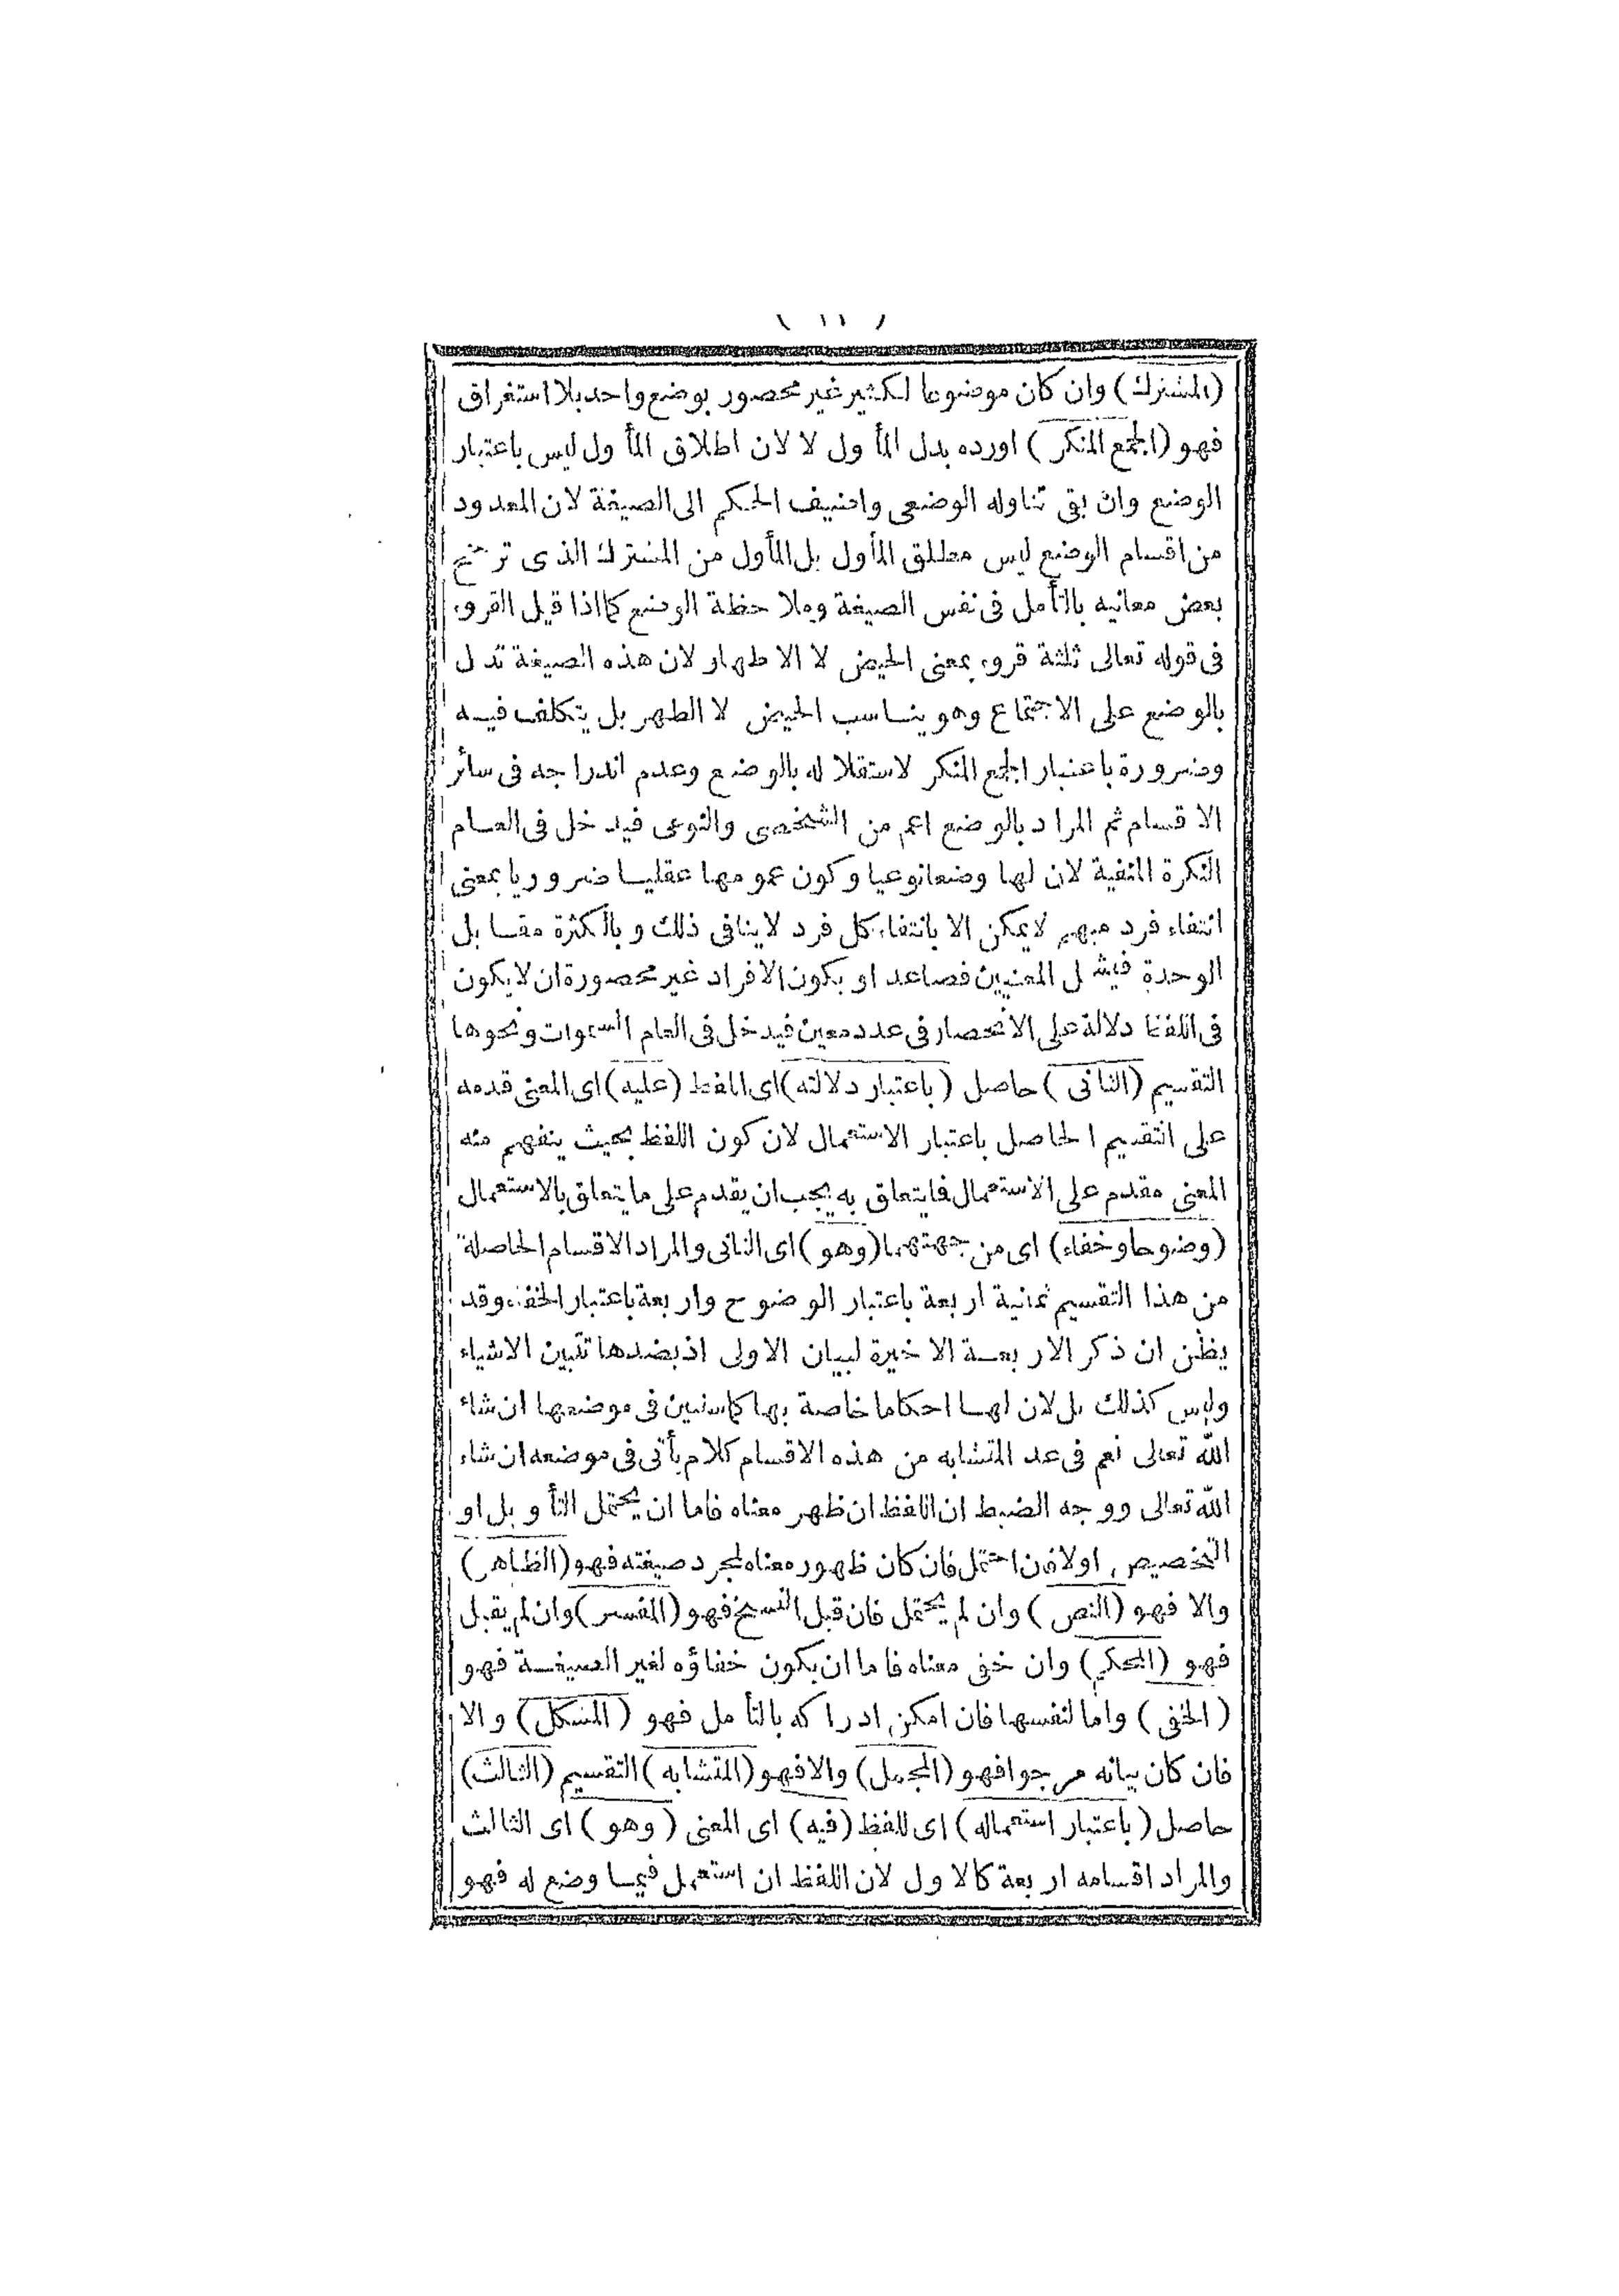 ( ١١ )
(المشترك) وان كان موضوعا لكثير غير محصور بوضع واحد بلا استغراق
فهو (الجمع المنكر) اورده بدل المأول لا لان اطلاق المأول ليس باعتبار
الوضع وان بقى تناوله الوضعى واضيف الحكم الى الصيغة لان المعدود
من اقسام الوضع ليس مطلق المأول بل المأول من المشترك الذى ترجح
بعض معانيه بالتأمل فى نفس الصيغة وملاحظة الوضع كما اذا قيل القروء
فى قوله تعالى ثلثة قروء بمعنى الحيض لا الاطهار لان هذه الصيغة تدل
بالوضع على الاجتماع وهو يناسب الحيض لا الطهر بل يتكلف فيه
وضرورة باعتبار الجمع المنكر لاستقلاله بالوضع وعدم اندراجه فى سائر
الاقسام ثم المراد بالوضع اعم من الشخصى والنوعى فيدخل فى العام
النكرة المنفية لان لها وضعا نوعيا وكون عمومها عقليا ضروريا بمعنى
انتفاء فرد مبهم لا يمكن الا بانتفاء كل فرد لا ينافى ذلك وبالكثرة مقابل
الوحدة فيشمل المعنيين فصاعدا وبكون الافراد غير محصورة ان لا يكون
فى اللفظ دلالة على الانحصار فى عدد معين فيدخل فى العام السموات ونحوها
التقسيم (الثانى) حاصل (باعتبار دلالته) اى اللفظ (عليه) اى المعنى قدمه
على التقسيم الحاصل باعتبار الاستعمال لان كون اللفظ بحيث ينفهم منه
المعنى مقدم على الاستعمال فما يتعلق به يجب ان يقدم على ما يتعلق بالاستعمال
(وضوحا وخفاء) اى من جهتهما (وهو) اى الثانى والمراد الاقسام الحاصلة
من هذا التقسيم ثمانية اربعة باعتبار الوضوح واربعة باعتبار الخفاء وقد
يظن ان ذكر الاربعة الاخيرة لبيان الاولى اذ بضدها تتبين الاشياء
وليس كذلك بل لان لها احكاما خاصة بها كما سنبين فى موضعها ان شاء
الله تعالى نعم فى عد المتشابه من هذه الاقسام كلام يأتى فى موضعه ان شاء
الله تعالى ووجه الضبط ان اللفظ ان ظهر معناه فاما ان يحتمل التأويل او
التخصيص اولا فان احتمل فان كان ظهور معناه لمجرد صيغته فهو (الظاهر)
والا فهو (النص) وان لم يحتمل فان قبل النسخ فهو (المفسر) وان لم يقبل
فهو (المحكم) وان خفى معناه فاما ان يكون خفاؤه لغير الصيغة فهو
(الخفى) واما لنفسها فان امكن ادراكه بالتأمل فهو (المشكل) والا
فان كان بيانه مرجوا فهو (المجمل) والا فهو (المتشابه) التقسيم (الثالث)
حاصل (باعتبار استعماله) اى للفظ (فيه) اى المعنى (وهو) اى الثالث
والمراد اقسامه اربعة كالاول لان اللفظ ان استعمل فيما وضع له فهو